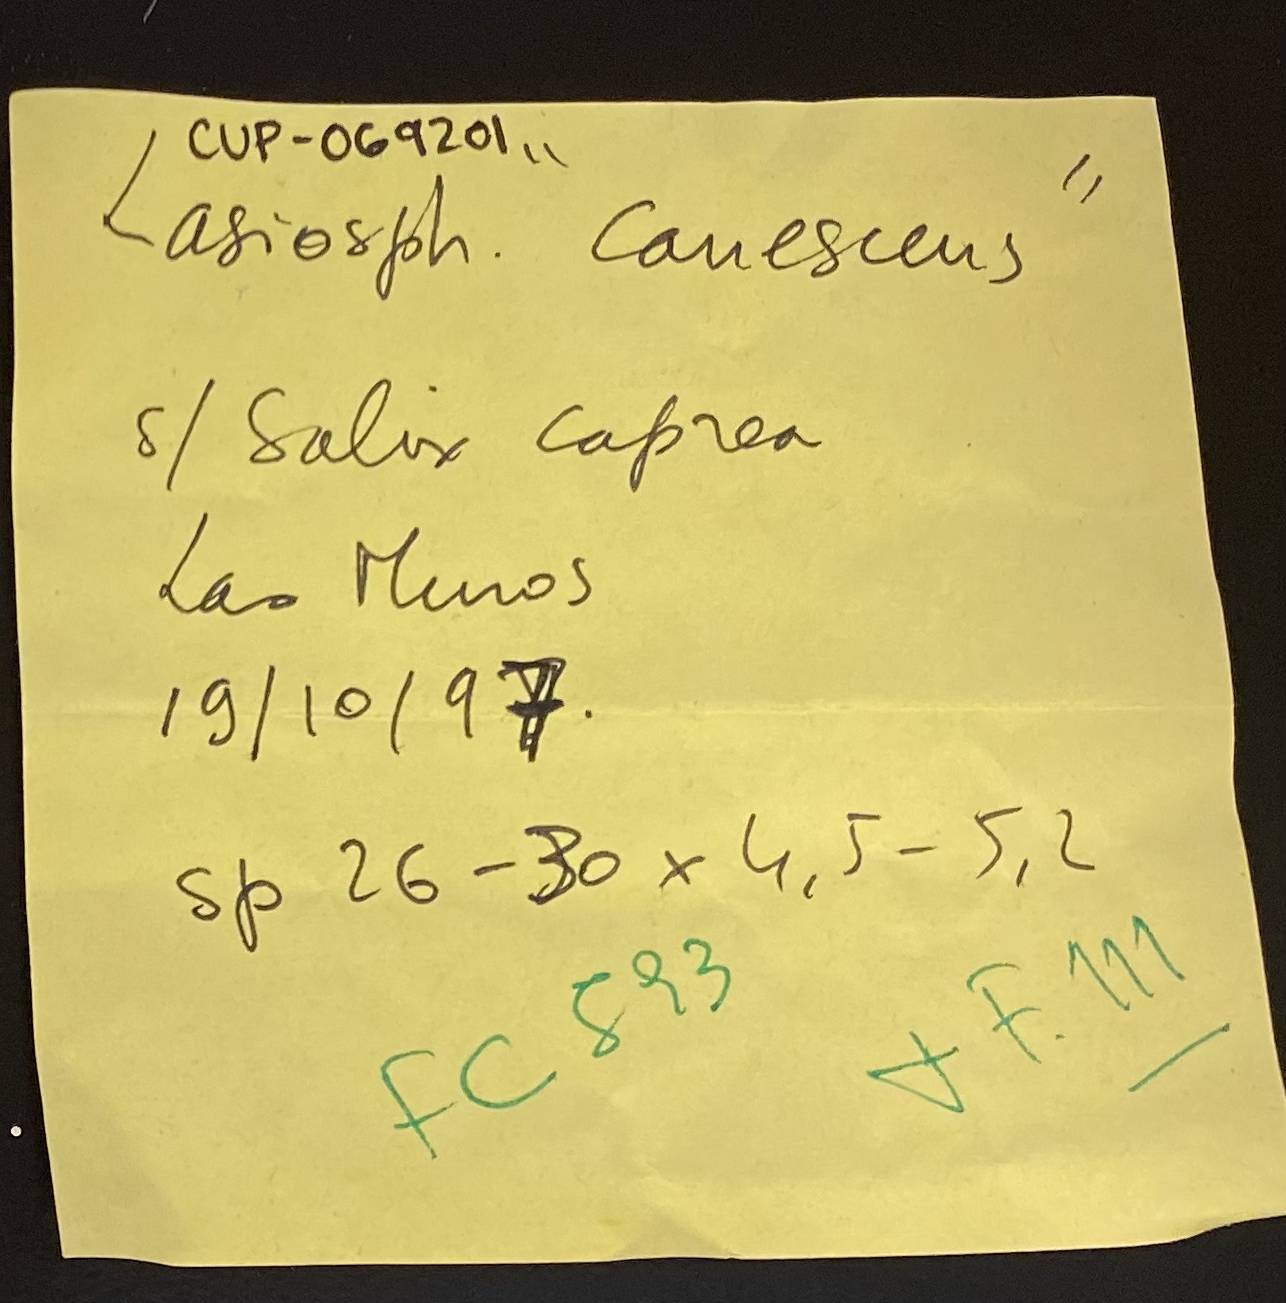 CUP-069201
"Lasiosph. Canescens"
s/ Salix caprea
Las Muros
19/10/97.
sp 26-30 x 4,5-5,2
FC 893
+ F. 111